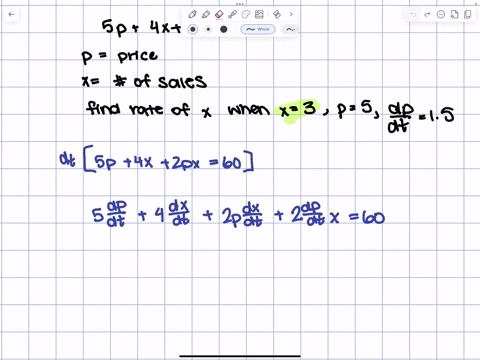 5p + 4x +
p = price
x = # of sales
find rate of x when x = 3, p = 5, dp/dt = 1.5
dt [5p + 4x + 2px = 60]
5 dp/dt + 4 dx/dt + 2p dx/dt + 2 dp/dt x = 60